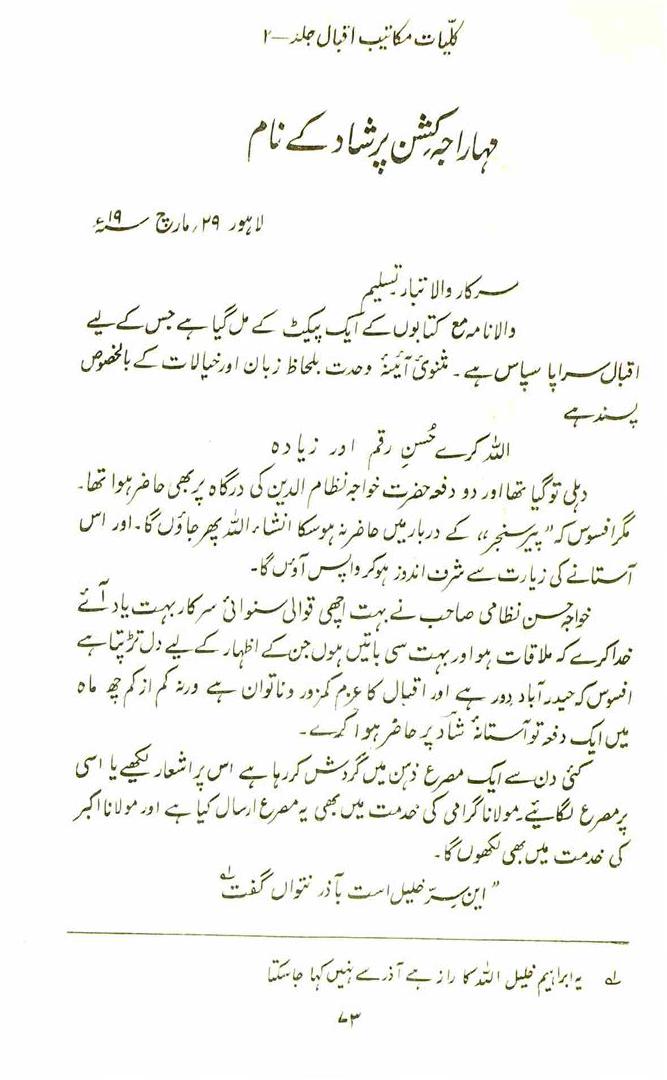 کلّیات مکاتیب اقبال جلد – ۲
مہاراجہ کشن پرشاد کے نام
لاہور ۲۹ ؍ مارچ ۱۹ سنہء
سرکار والا تبار تسلیم
والا نامہ مع کتابوں کے ایک پیکٹ کے مل گیا ہے جس کے لیے
اقبال سراپا سپاس ہے ۔ مثنوئ آئینۂ وحدت بلحاظ زبان اور خیالات کے بالخصوص
پسند ہے
اللہ کرے حُسنِ رقم اور زیادہ
دہلی تو گیا تھا اور دو دفعہ حضرت خواجہ نظام الدین کی درگاہ پر بھی حاضر ہوا تھا۔
مگر افسوس کہ ”پیر سنجر“ کے دربار میں حاضر نہ ہو سکا انشاء اللہ پھر جاؤں گا۔ اور اس
آستانے کی زیارت سے شرف اندوز ہو کر واپس آؤں گا۔
خواجہ حسن نظامی صاحب نے بہت اچھی قوالی سنوائی سرکار بہت یاد آئے
خدا کرے کہ ملاقات ہو اور بہت سی باتیں ہوں جن کے اظہار کے لیے دل تڑپتا ہے
افسوس کہ حیدر آباد دور ہے اور اقبال کا عزم کمزور و ناتوان ہے ورنہ کم از کم چھ ماہ
میں ایک دفعہ تو آستانۂ شاد پر حاضر ہوا کرے۔
کئی دن سے ایک مصرع ذہن میں گردش کر رہا ہے اس پر اشعار لکھیے یا اسی
پر مصرع لگائیے۔ مولانا گرامی کی خدمت میں بھی یہ مصرع ارسال کیا ہے اور مولانا اکبر
کی خدمت میں بھی لکھوں گا۔
”این سرِّ خلیل است بآذر نتواں گفت لہ
لہ یہ ابراہیم خلیل اللہ کا راز ہے آذر سے نہیں کہا جا سکتا
۷۳